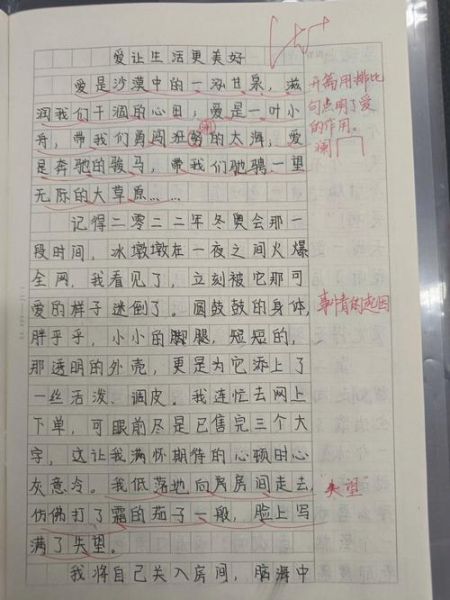 爱让生活更美好
爱是沙漠中的一泓甘泉，滋
润我们干涸的心田，爱是一叶小
舟，带我们勇闯班斓的大海，爱
是奔驰的骏马，带我们驰骋一望
无际的大草原……
开篇用排比
句点明了爱
的作用。
斓
记得二零二二年冬奥会那一
段时间，冰墩墩在一夜之间火爆
全网，我看见了，立刻被它那可
爱的样子迷倒了。圆鼓鼓的身体，
事情的起因
胖乎乎，小小的脚腿，短短的，
那透明的外壳，更是为它添上了
一丝活泼、调皮。我连忙去网上
下单，可眼前尽是已售完三个大
字，这让我满怀期待的心顿时心
灰意冷。我低落地向房房间走去，
"失望"
仿佛打了霜的茄子一般，脸上写
满了失望。
我将自己关入房间，脑海中